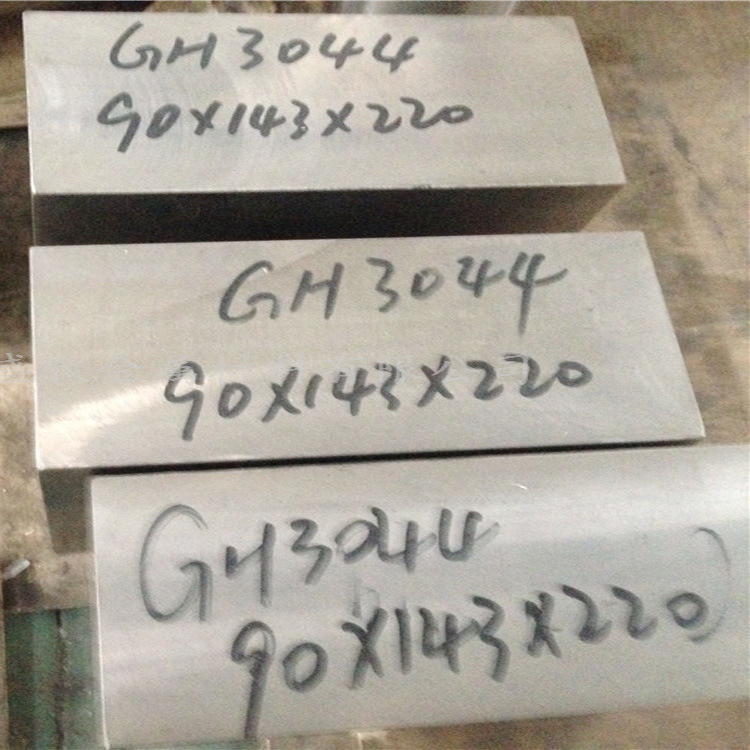 GH3044
90X143X220
GH3044
90X143X220
GH3044
90X143X220